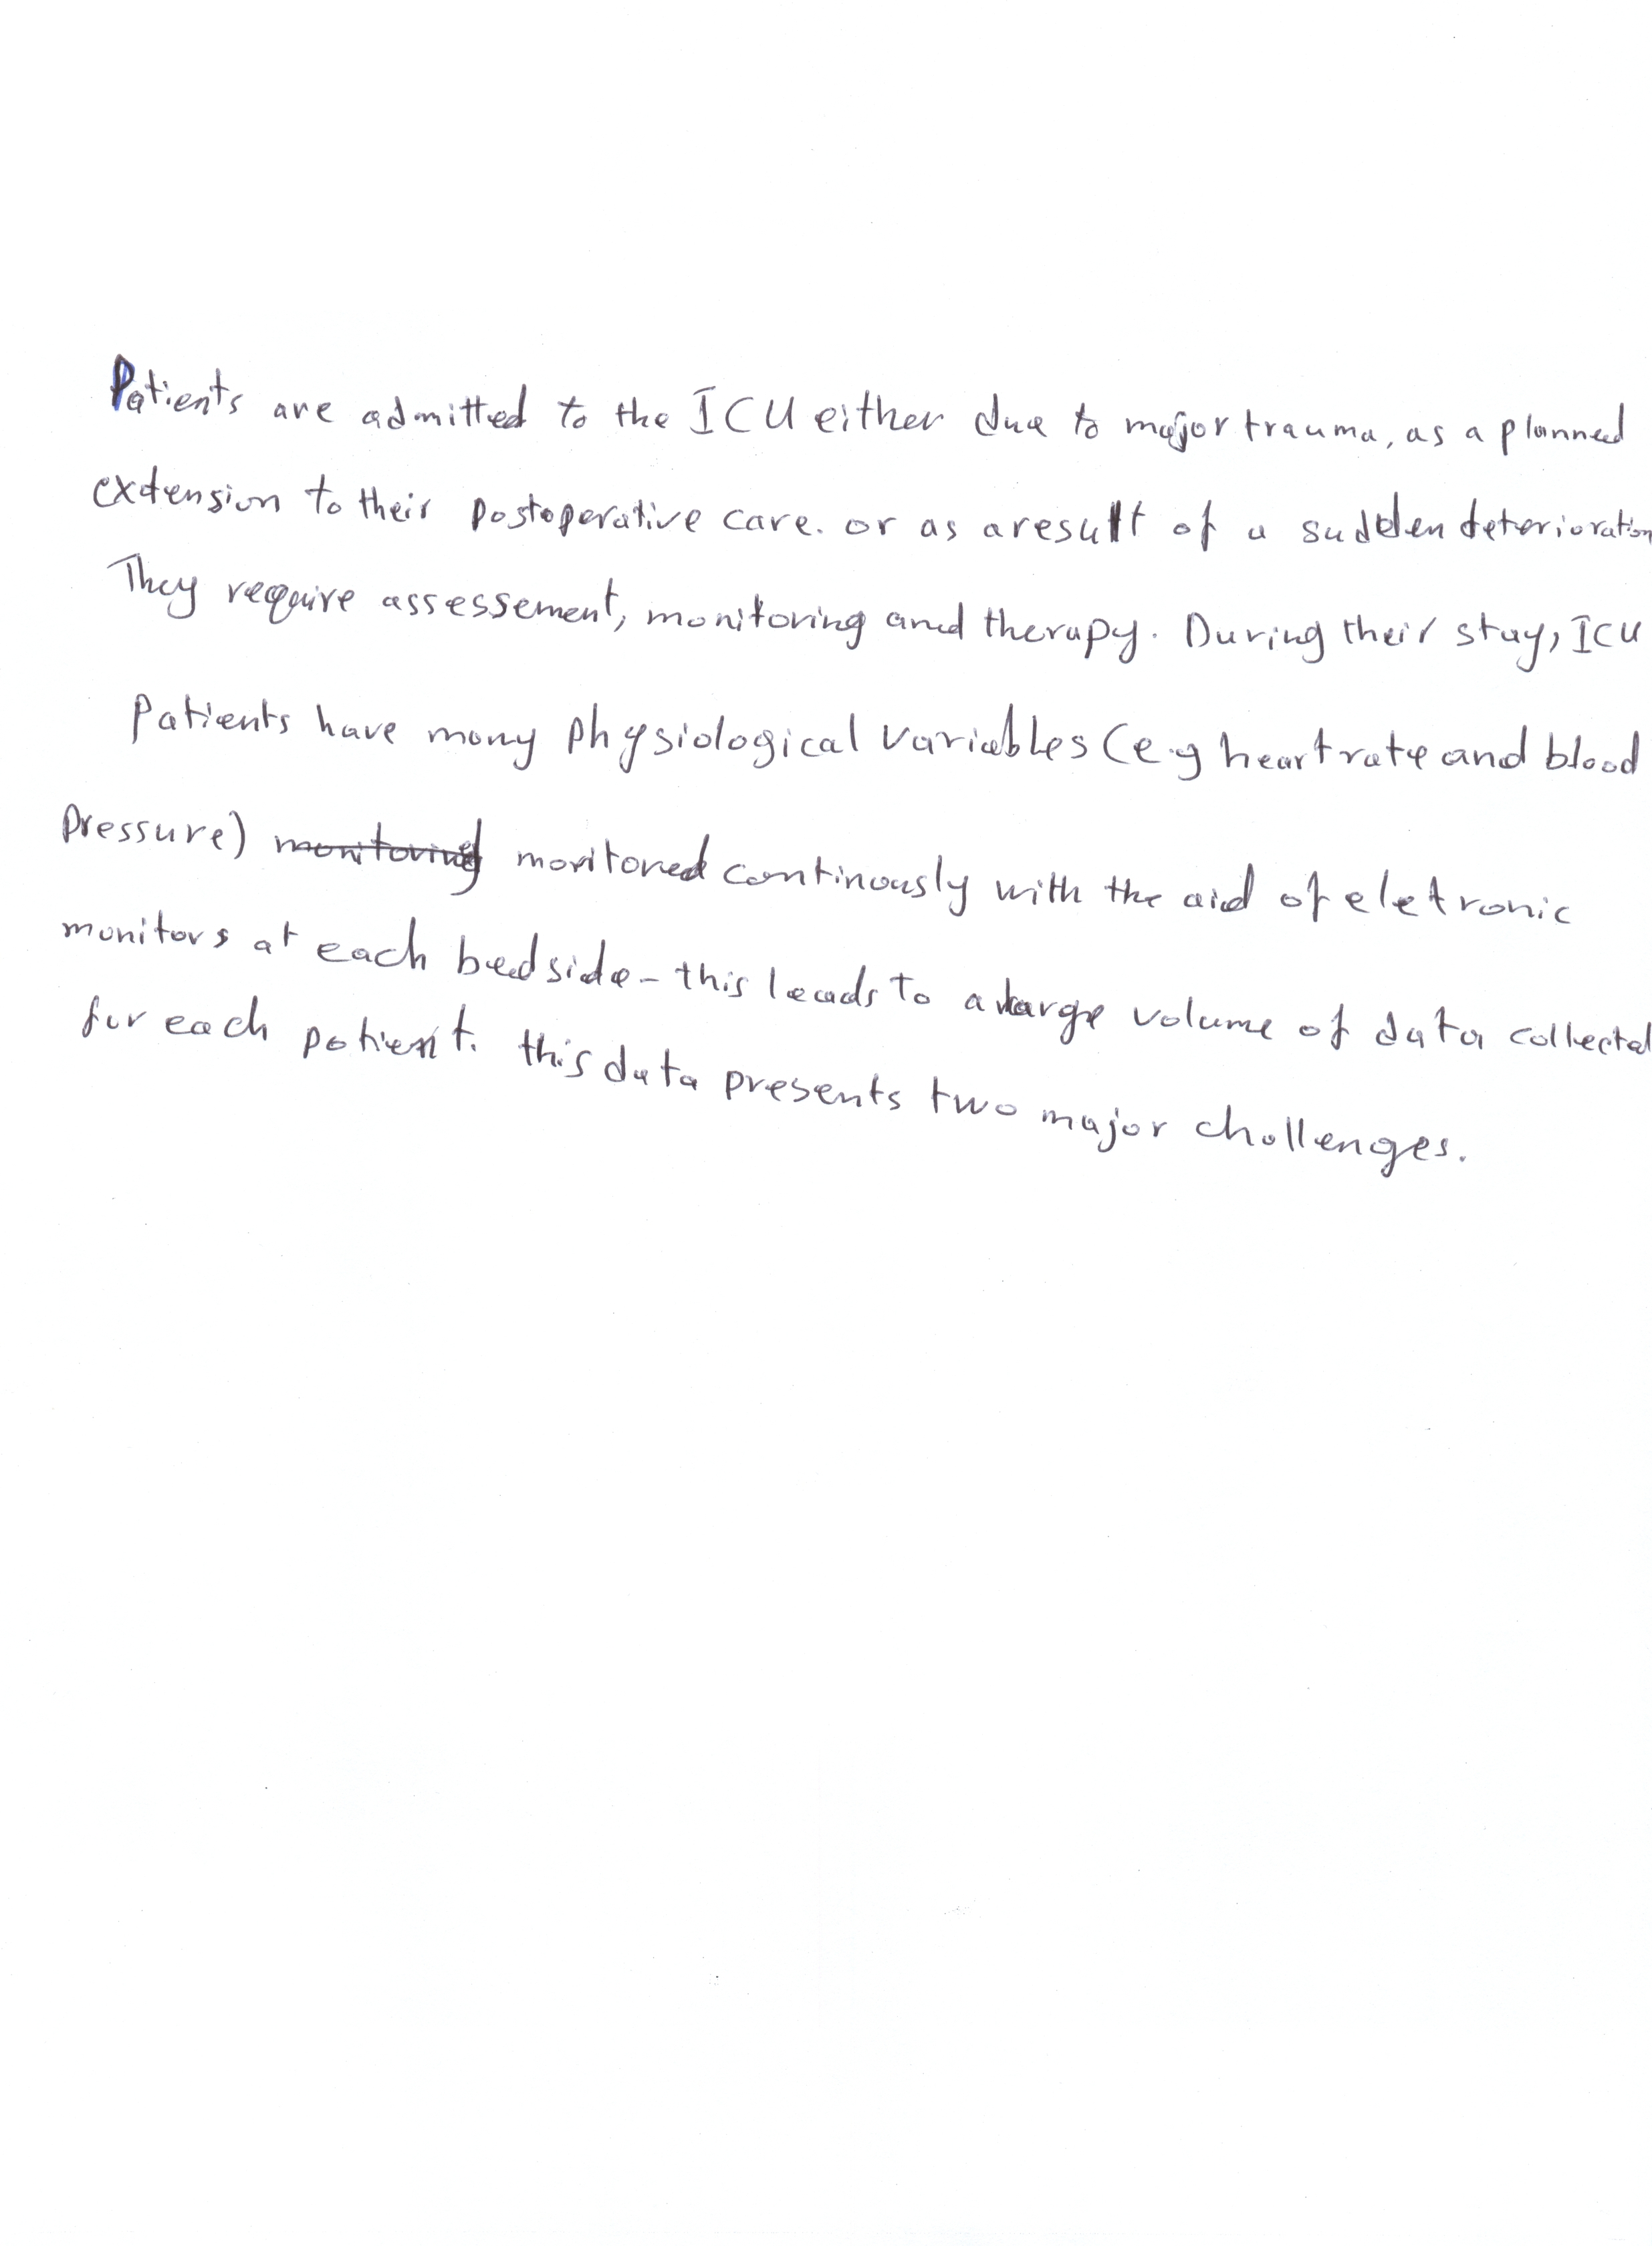 Patients are admitted to the ICU either due to major trauma, as a planned
extension to their postoperative care. or as a result of a sudden deterioration
They require assessement, monitoring and therapy. During their stay, ICU
Patients have many physiological variables (e.g heart rate and blood
pressure) monitoring monitored continously with the aid of eletronic
monitors at each bedside - this leads to a large volume of data collected
for each patient. this data presents two major challenges.